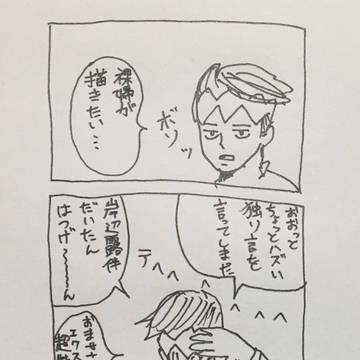 裸婦が
描きたい…
ボソッ
おおっと
ちょっとハズい
独り言を
言ってしまた
岸辺露伴
だいたん
はつげ〜〜〜ん
テヘヘヘ
おませさ
エクス